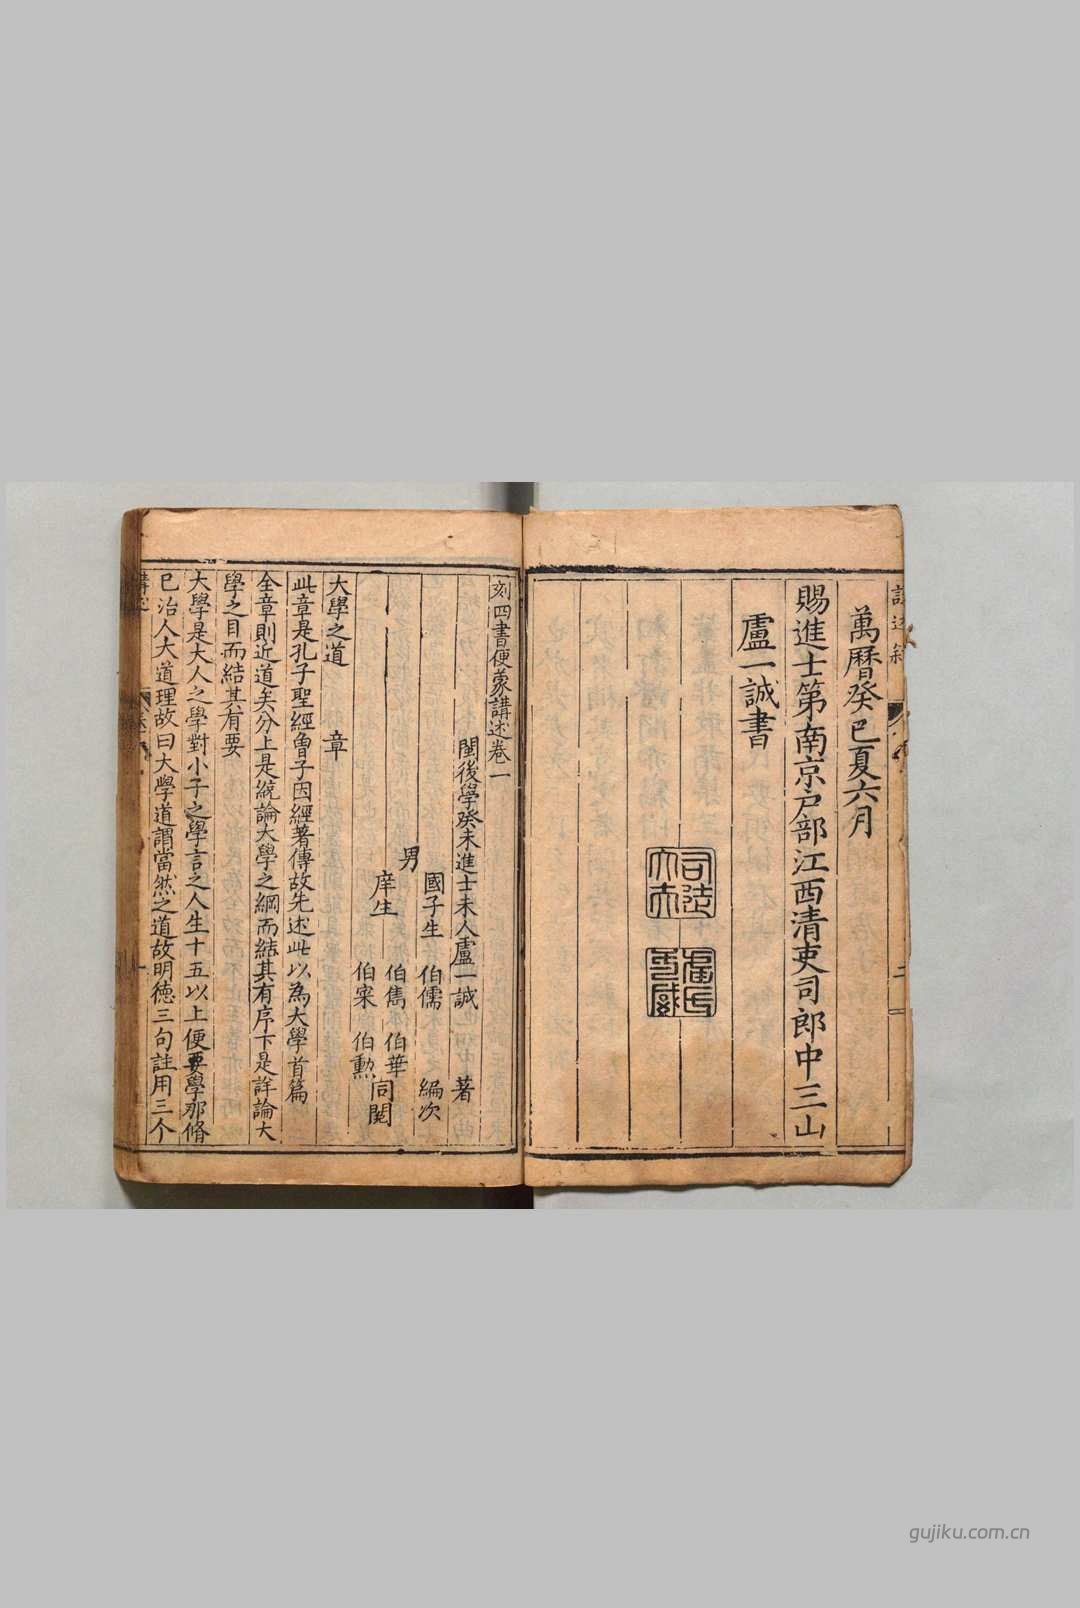 萬曆癸巳夏六月
賜進士第南京戶部江西清吏司郎中三山
盧一誠書
刻四書便蒙講述卷一
閩後學癸未進士未人盧一誠 著
國子生 伯儒 編次
男
庠生 伯雋 伯華
伯寀 伯勲 同閱
大學之道 章
此章是孔子聖經曾子因經著傳故先述此以為大學首篇
全章則近道矣分上是統論大學之綱而結其有序下是詳論大
學之目而結其有要
大學是大人之學對小子之學言之人生十五以上便要學那脩
已治人大道理故曰大學道謂當然之道故明德三句註用三个
gujiku.com.cn